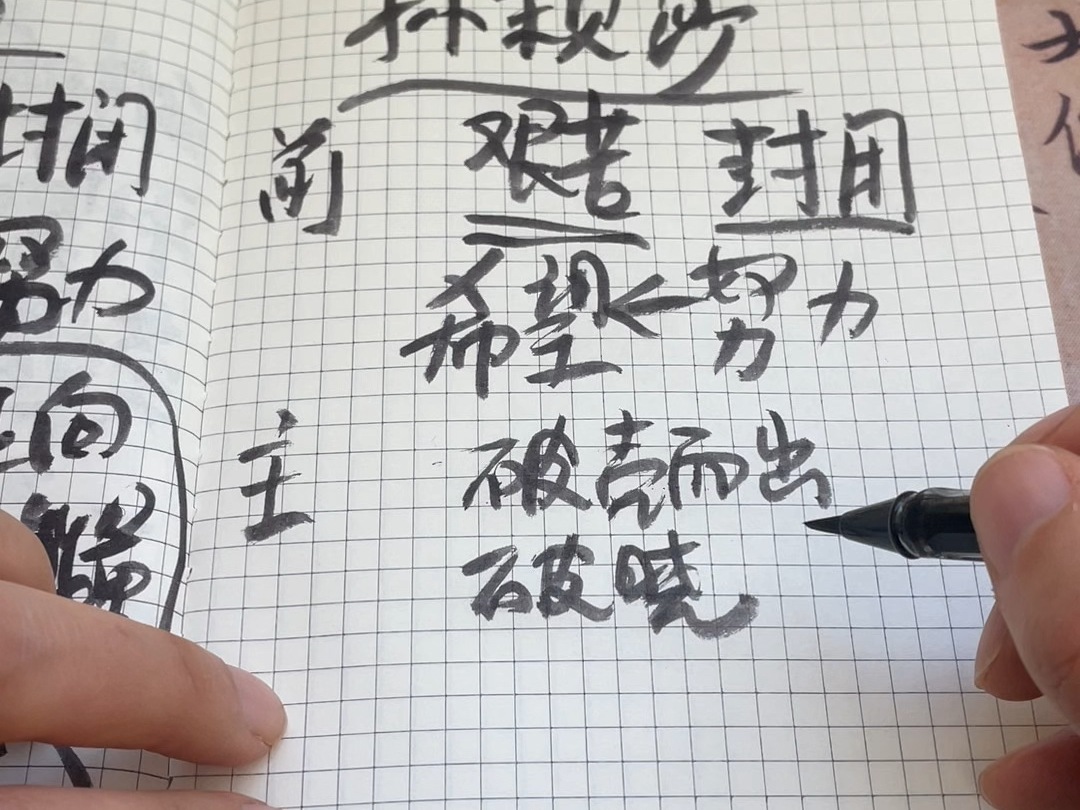 封闭
努力
向
孙颖莎
前 艰苦 封闭
希望 努力
主 破壳而出
破晓